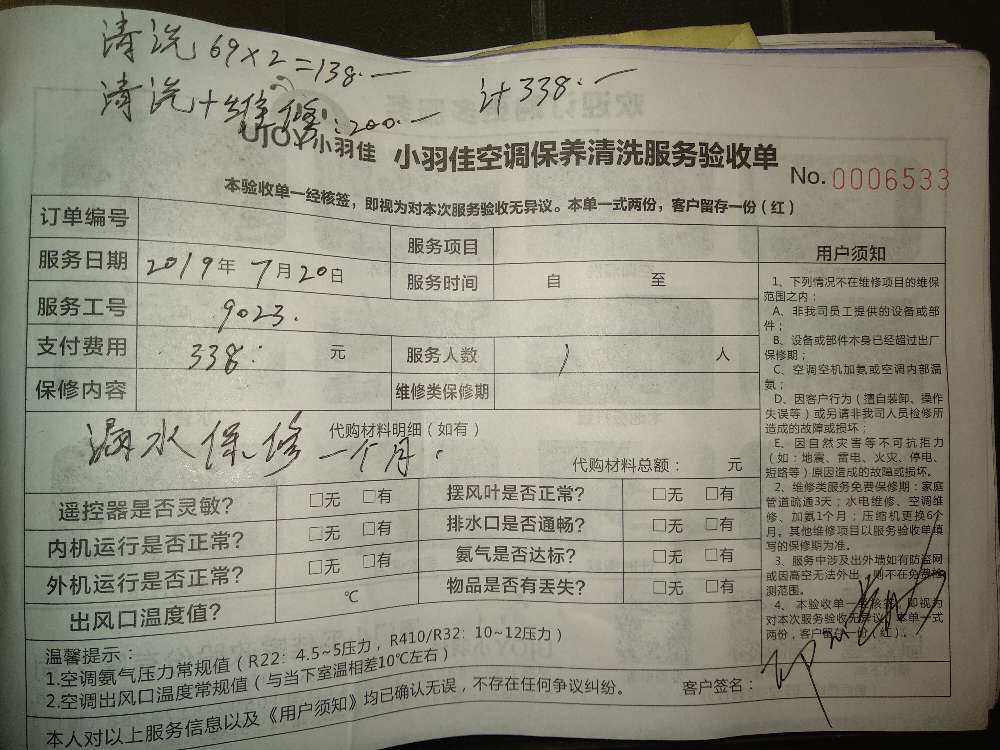 清洗 69×2=138.一
清洗+维修:200.一 计338.一
UJOY小羽佳 小羽佳空调保养清洗服务验收单
No. 0006533
本验收单一经核签，即视为对本次服务验收无异议。本单一式两份，客户留存一份（红）
订单编号
服务项目
服务日期 2019年7月20日
服务时间 自 至
服务工号 9023.
支付费用 338: 元
服务人数 1 人
保修内容
维修类保修期
漏水保修一个月.
代购材料明细（如有）
代购材料总额： 元
遥控器是否灵敏? □无 □有
摆风叶是否正常? □无 □有
内机运行是否正常? □无 □有
排水口是否通畅? □无 □有
外机运行是否正常? □无 □有
氨气是否达标? □无 □有
出风口温度值? ℃
物品是否有丢失? □无 □有
温馨提示：
1.空调氨气压力常规值（R22：4.5~5压力，R410/R32：10~12压力）
2.空调出风口温度常规值（与当下室温相差10℃左右）
本人对以上服务信息以及《用户须知》均已确认无误，不存在任何争议纠纷。
客户签名：
用户须知
1、下列情况不在维修项目的维保
范围之内：
A、非我司员工提供的设备或部
件；
B、设备或部件本身已经超过出厂
保修期；
C、空调空机加氨或空调内部温
氨；
D、因客户行为（擅自装卸、操作
失误等）或另请非我司人员检修所
造成的故障或损坏；
E、因自然灾害等不可抗拒力
（如：地震、雷电、火灾、停电、
短路等）原因造成的故障或损坏。
2、维修类服务免费保修期：家庭
管道疏通3天；水电维修、空调维
修、加氨1个月；压缩机更换6个
月。其他维修项目以服务验收单填
写的保修期为准。
3、服务中涉及出外墙如有防盗网
或因高空无法外出，则不在免费检
测范围。
4、本验收单一经核签，即视为
对本次服务验收无异议。本单一式
两份，客户留存一份（红）。